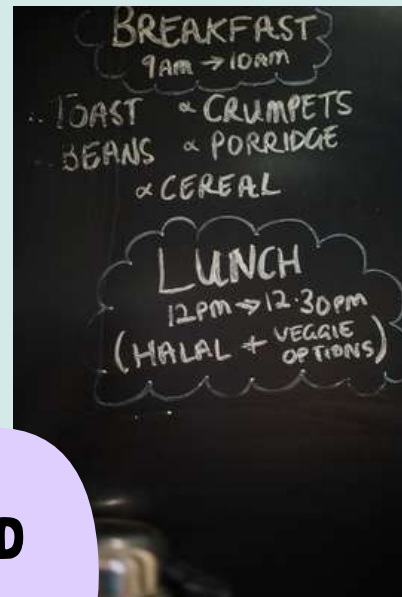 BREAKFAST
9AM → 10AM
TOAST ∝ CRUMPETS
BEANS ∝ PORRIDGE
∝ CEREAL
LUNCH
12PM → 12.30PM
(HALAL + VEGGIE
OPTIONS)
D